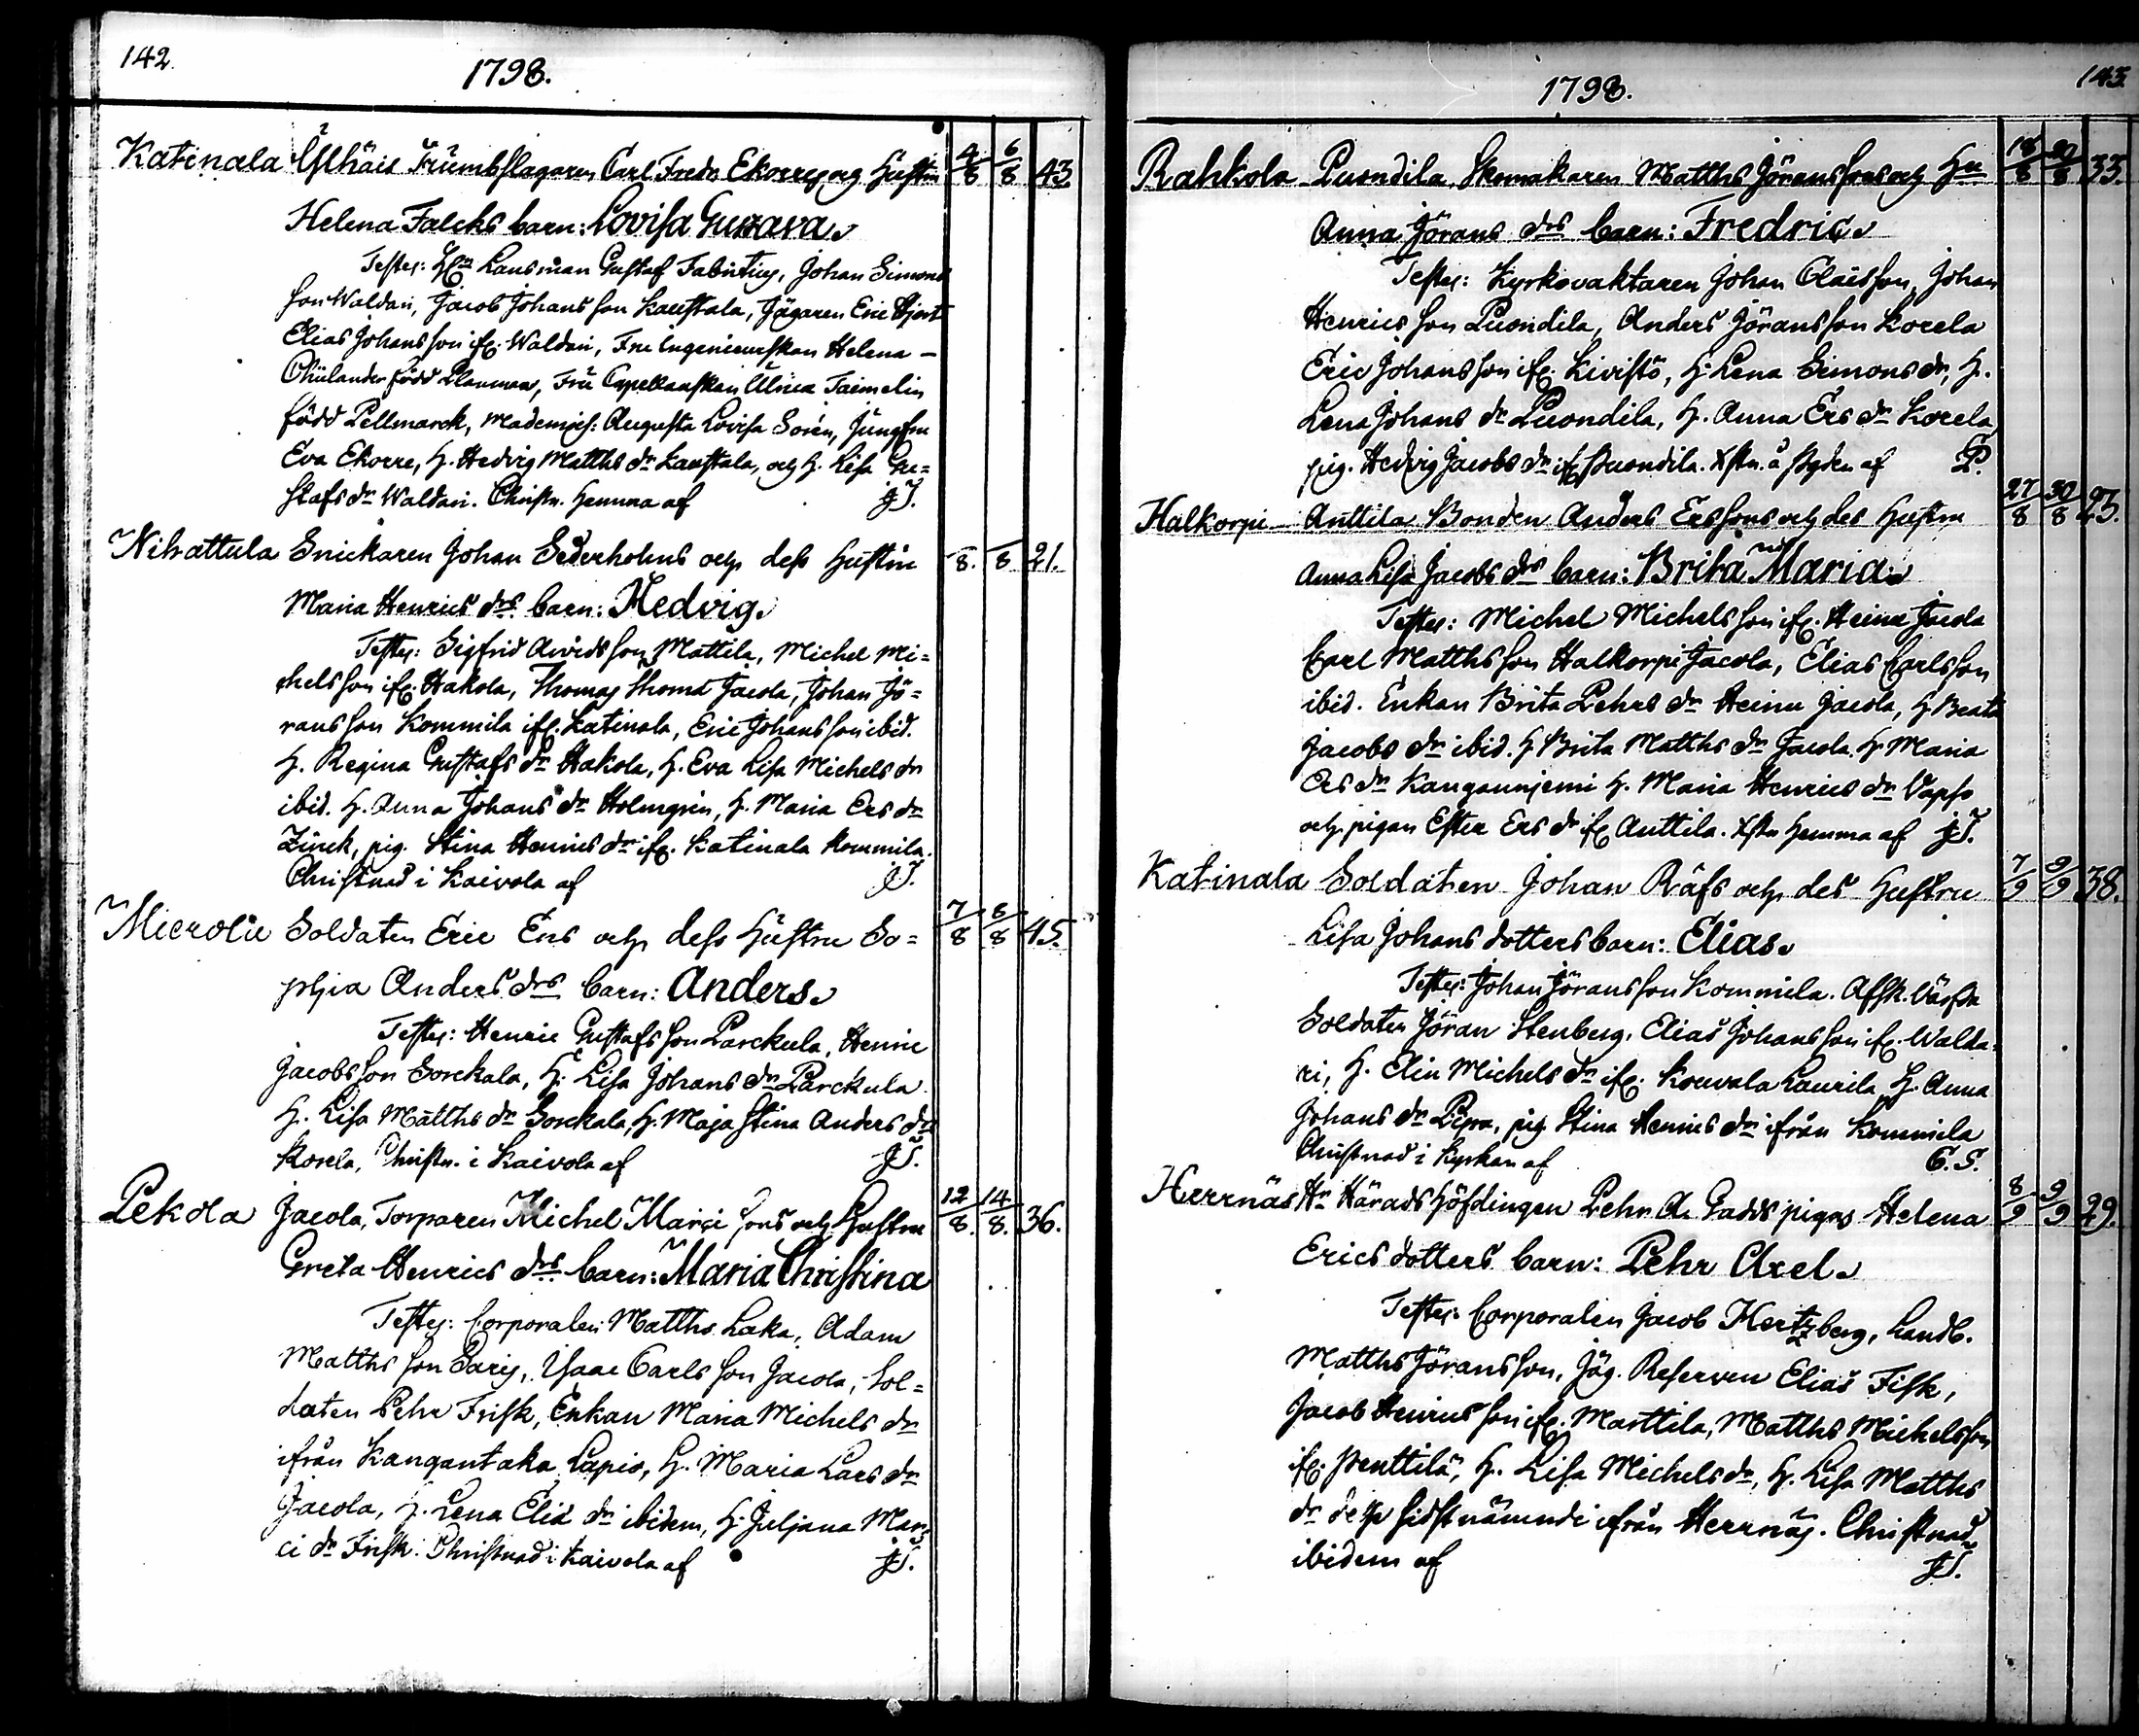 142.
1798.
Katinala Ylhäis Trumbslagaren Carl Fredr Ekorres och Hustru 4/8 6/8 43.
Helena Falcks barn: Lovisa Gustava.
Testes: Hr Länsman Gustaf Fabritius, Johan Simons
son Waldari, Jacob Johansson Kaustala, Jägaren Eric Hjort
Elias Johansson ifr. Waldari, Fru Ingenieurskan Helena –
Chiulander född Planman, Fru Capellanskan Ulrica Taimelin
född Pellmarck, Mademois: Augusta Lovisa Sorén, Jungfru
Eva Ekorre, H. Hedvig Matths dr Kaustala, och H. Lisa Gu=
stafs dr Waldari. Christn. hemma af JT.
Nihattula Snickaren Johan Sederholms och dess Hustru /8. /8 21.
Maria Henrics drs barn: Hedvig.
Testes: Sigfrid Arvidsson Mattila, Michel Mi=
chelsson ifr. Hakola, Thomas Thomæ Jacola, Johan Jö=
ransson Kommila ifr. Katinala, Eric Johansson ibid.
H. Regina Gustafs dr Hakola, H. Eva Lisa Michels dr
ibid. H. Anna Johans dr Holmgrén, H. Maria Ers dr
Zinck, pig. Stina Henrics dr ifr. Katinala Kommila.
Christnad i Kaivola af JT.
Miervola Soldaten Eric Ens och dess Hustru So= 7/8 8/8 45.
phia Anders drs barn: Anders.
Testes: Henric Gustafsson Parckula, Henric
Jacobsson Sorckala, H. Lisa Johans dr Parckula
H. Lisa Matths dr Sorckala, H. Maja Stina Anders dr
Korela, Christn. i Kaivola af JT.
Pekola Jacola, Torparen Michel Marci sons och Hustru 12/8. 14/8. 36.
Greta Henrics drs barn: Maria Christina
Testes: Corporalen Matths Laka, Adam
Matthsson Paris, Isaac Carlsson Jacola, Sol=
daten Pehr Frisk, Enkan Maria Michels dr
ifrån Kangantaka Lapio, H. Maria Lars dr
Jacola, H. Lena Eliæ dr ibidem, H. Juljana Mar=
ci dr Frisk. Christnad i Kaivola af JT.
1798.
143.
Rahkola Puondila, Skomakaren Matths Jöranssons och Hu 18/8 20/8 33.
Anna Jörans drs barn: Fredric.
Testes: Kyrkovaktaren Johan Claësson, Johan
Henricsson Puondila, Anders Jöransson Korela
Eric Johansson ifr. Kivistö, H. Lena Simons dr, H.
Lena Johans dr Puondila, H. Anna Ers dr Korela,
pig. Hedvig Jacobs dr ifr Puondila. Xstn. å Bygden af P.
Halkorpi – Anttila Bonden Anders Erssons och des Hustru 27/8 30/8 23.
Anna Lisa Jacobs drs barn: Brita Maria.
Testes: Michel Michelsson ifr. Heinu Jacola
Carl Matthsson Halkorpi Jacola, Elias Carlsson
ibid. Enkan Brita Pehrs dr Heinu Jacola, H Beata
Jacobs dr ibid. H Brita Matths dr Jacola. H Maria
Ers dr Kangannjemi H. Maria Henrics dr Vapso
och pigan Ester Ers dr ifr Anttila. Xstn hemma af JT.
Katinala Soldaten Johan Räfs och des Hustru 7/9 9/9 38.
Lisa Johans dotters barn: Elias.
Testes: Johan Jöransson Kommila. Afsk. Värfda
Soldaten Jöran Stenberg, Elias Johansson ifr. Walda=
ri, H. Elin Michels dr ifr. Kouvala Laurila, H. Anna
Johans dr Pipra, pig Stina Henrics dr ifrån Kommila
Christnad i Kyrkan af G.S.
Herrnäs Hr Häradshöfdingen Pehr A. Gadds pigas Helena 8/9 9/9 29.
Erics dotters barn: Pehr Axel.
Testes: Corporalen Jacob Hertzberg, Landb.
Matths Jöransson, Jäg. Reserven Elias Fisk,
Jacob Henricsson ifr. Marttila, Matths Michelsson
ifr. Penttilä, H. Lisa Michels dr, H. Lisa Matths
dr de 4 sidstnämnde ifrån Herrnäs. Christnad
ibidem af JT.